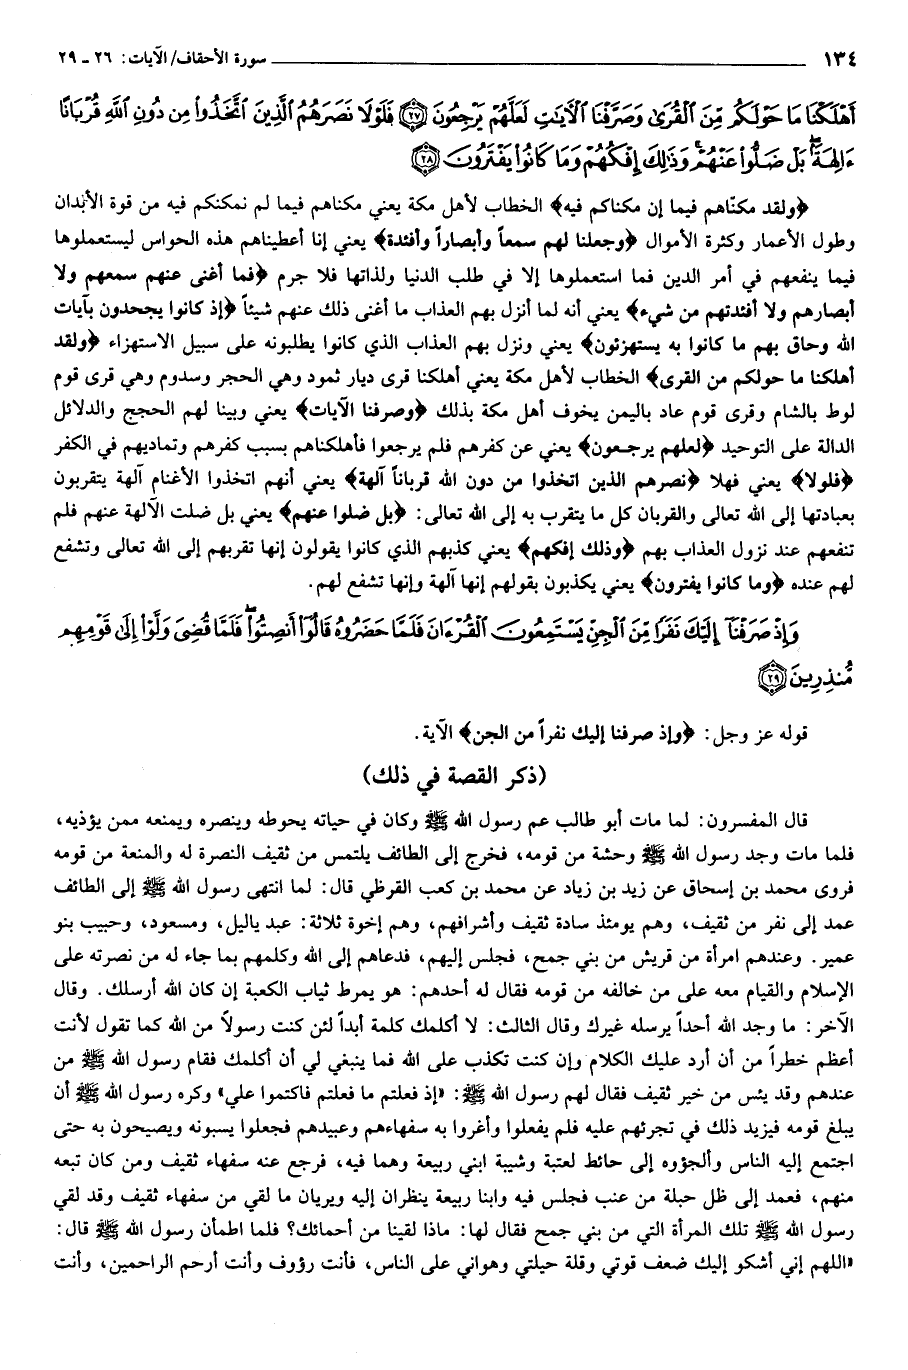 ١٣٤ سورة الأحقاف/ الآيات: ٢٦ ـ ٢٩
أَهْلَكْنَا مَا حَوْلَكُم مِّنَ ٱلْقُرَىٰ وَصَرَّفْنَا ٱلْآيَٰتِ لَعَلَّهُمْ يَرْجِعُونَ ﴿٢٧﴾ فَلَوْلَا نَصَرَهُمُ ٱلَّذِينَ ٱتَّخَذُوا۟ مِن دُونِ ٱللَّهِ قُرْبَانًا
ءَالِهَةًۢ ۖ بَلْ ضَلُّوا۟ عَنْهُمْ ۚ وَذَٰلِكَ إِفْكُهُمْ وَمَا كَانُوا۟ يَفْتَرُونَ ﴿٢٨﴾
﴿ولقد مكنّاهم فيما إن مكناكم فيه﴾ الخطاب لأهل مكة يعني مكناهم فيما لم نمكنكم فيه من قوة الأبدان
وطول الأعمار وكثرة الأموال ﴿وجعلنا لهم سمعاً وأبصاراً وأفئدة﴾ يعني إنا أعطيناهم هذه الحواس ليستعملوها
فيما ينفعهم في أمر الدين فما استعملوها إلا في طلب الدنيا ولذاتها فلا جرم ﴿فما أغنى عنهم سمعهم ولا
أبصارهم ولا أفئدتهم من شيء﴾ يعني أنه لما أنزل بهم العذاب ما أغنى ذلك عنهم شيئاً ﴿إذ كانوا يجحدون بآيات
الله وحاق بهم ما كانوا به يستهزئون﴾ يعني ونزل بهم العذاب الذي كانوا يطلبونه على سبيل الاستهزاء ﴿ولقد
أهلكنا ما حولكم من القرى﴾ الخطاب لأهل مكة يعني أهلكنا قرى ديار ثمود وهي الحجر وسدوم وهي قرى قوم
لوط بالشام وقرى قوم عاد باليمن يخوف أهل مكة بذلك ﴿وصرفنا الآيات﴾ يعني وبينا لهم الحجج والدلائل
الدالة على التوحيد ﴿لعلهم يرجعون﴾ يعني عن كفرهم فلم يرجعوا فأهلكناهم بسبب كفرهم وتماديهم في الكفر
﴿فلولا﴾ يعني فهلا ﴿نصرهم الذين اتخذوا من دون الله قرباناً آلهة﴾ يعني أنهم اتخذوا الأغنام آلهة يتقربون
بعبادتها إلى الله تعالى والقربان كل ما يتقرب به إلى الله تعالى: ﴿بل ضلوا عنهم﴾ يعني بل ضلت الآلهة عنهم فلم
تنفعهم عند نزول العذاب بهم ﴿وذلك إفكهم﴾ يعني كذبهم الذي كانوا يقولون إنها تقربهم إلى الله تعالى وتشفع
لهم عنده ﴿وما كانوا يفترون﴾ يعني يكذبون بقولهم إنها آلهة وإنها تشفع لهم.
وَإِذْ صَرَفْنَآ إِلَيْكَ نَفَرًا مِّنَ ٱلْجِنِّ يَسْتَمِعُونَ ٱلْقُرْءَانَ فَلَمَّا حَضَرُوهُ قَالُوٓا۟ أَنصِتُوا۟ ۖ فَلَمَّا قُضِىَ وَلَّوْا۟ إِلَىٰ قَوْمِهِم
مُّنذِرِينَ ﴿٢٩﴾
قوله عز وجل: ﴿وإذ صرفنا إليك نفراً من الجن﴾ الآية.
(ذكر القصة في ذلك)
قال المفسرون: لما مات أبو طالب عم رسول الله ﷺ وكان في حياته يحوطه وينصره ويمنعه ممن يؤذيه،
فلما مات وجد رسول الله ﷺ وحشة من قومه، فخرج إلى الطائف يلتمس من ثقيف النصرة له والمنعة من قومه
فروى محمد بن إسحاق عن زيد بن زياد عن محمد بن كعب القرظي قال: لما انتهى رسول الله ﷺ إلى الطائف
عمد إلى نفر من ثقيف، وهم يومئذ سادة ثقيف وأشرافهم، وهم إخوة ثلاثة: عبد ياليل، ومسعود، وحبيب بنو
عمير. وعندهم امرأة من قريش من بني جمح، فجلس إليهم، فدعاهم إلى الله وكلمهم بما جاء له من نصرته على
الإسلام والقيام معه على من خالفه من قومه فقال له أحدهم: هو يمرط ثياب الكعبة إن كان الله أرسلك. وقال
الآخر: ما وجد الله أحداً يرسله غيرك وقال الثالث: لا أكلمك كلمة أبداً لئن كنت رسولاً من الله كما تقول لأنت
أعظم خطراً من أن أرد عليك الكلام وإن كنت تكذب على الله فما ينبغي لي أن أكلمك فقام رسول الله ﷺ من
عندهم وقد يئس من خير ثقيف فقال لهم رسول الله ﷺ: «إذ فعلتم ما فعلتم فاكتموا علي» وكره رسول الله ﷺ أن
يبلغ قومه فيزيد ذلك في تجرئهم عليه فلم يفعلوا وأغروا به سفهاءهم وعبيدهم فجعلوا يسبونه ويصيحون به حتى
اجتمع إليه الناس وألجؤوه إلى حائط لعتبة وشيبة ابني ربيعة وهما فيه، فرجع عنه سفهاء ثقيف ومن كان تبعه
منهم، فعمد إلى ظل حبلة من عنب فجلس فيه وابنا ربيعة ينظران إليه ويريان ما لقي من سفهاء ثقيف وقد لقي
رسول الله ﷺ تلك المرأة التي من بني جمح فقال لها: ماذا لقينا من أحمائك؟ فلما اطمأن رسول الله ﷺ قال:
«اللهم إني أشكو إليك ضعف قوتي وقلة حيلتي وهواني على الناس، فأنت رؤوف وأنت أرحم الراحمين، وأنت